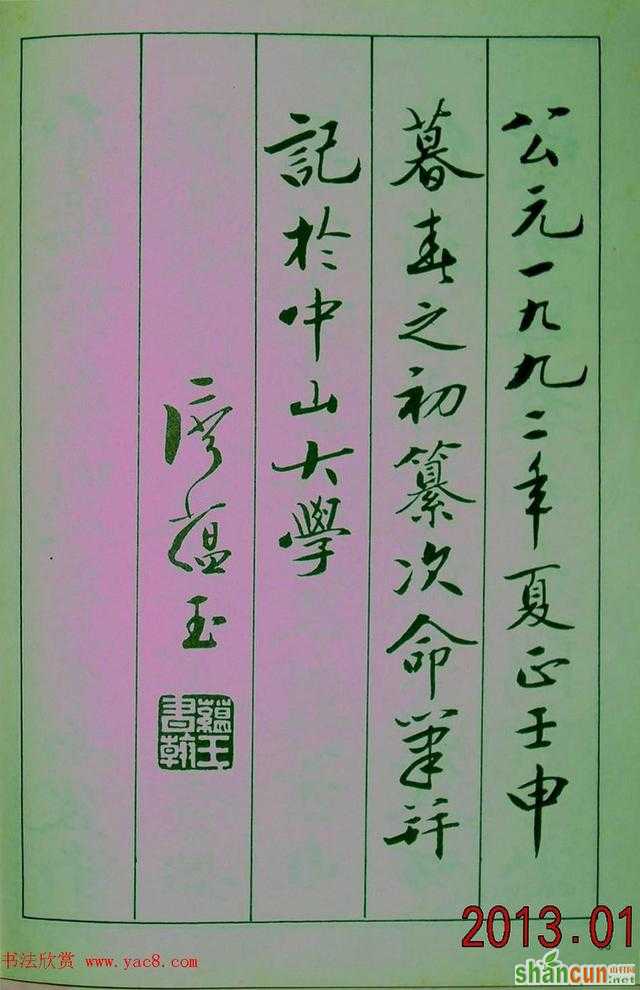 公元一九九二年夏正壬申
暮春之初纂次命筆并
記於中山大學
廖蘊玉
蘊玉書翰
2013.01
书法欣赏 www.yac8.com
shancun
山村网
.net